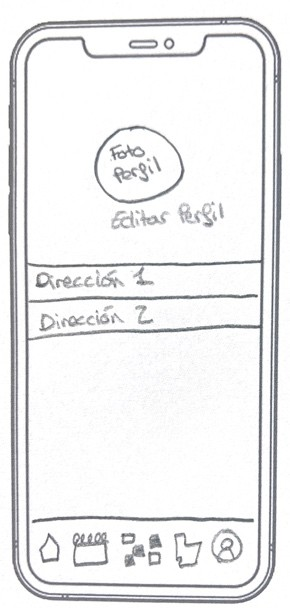 Foto
Perfil
Editar Perfil
Dirección 1
Dirección 2